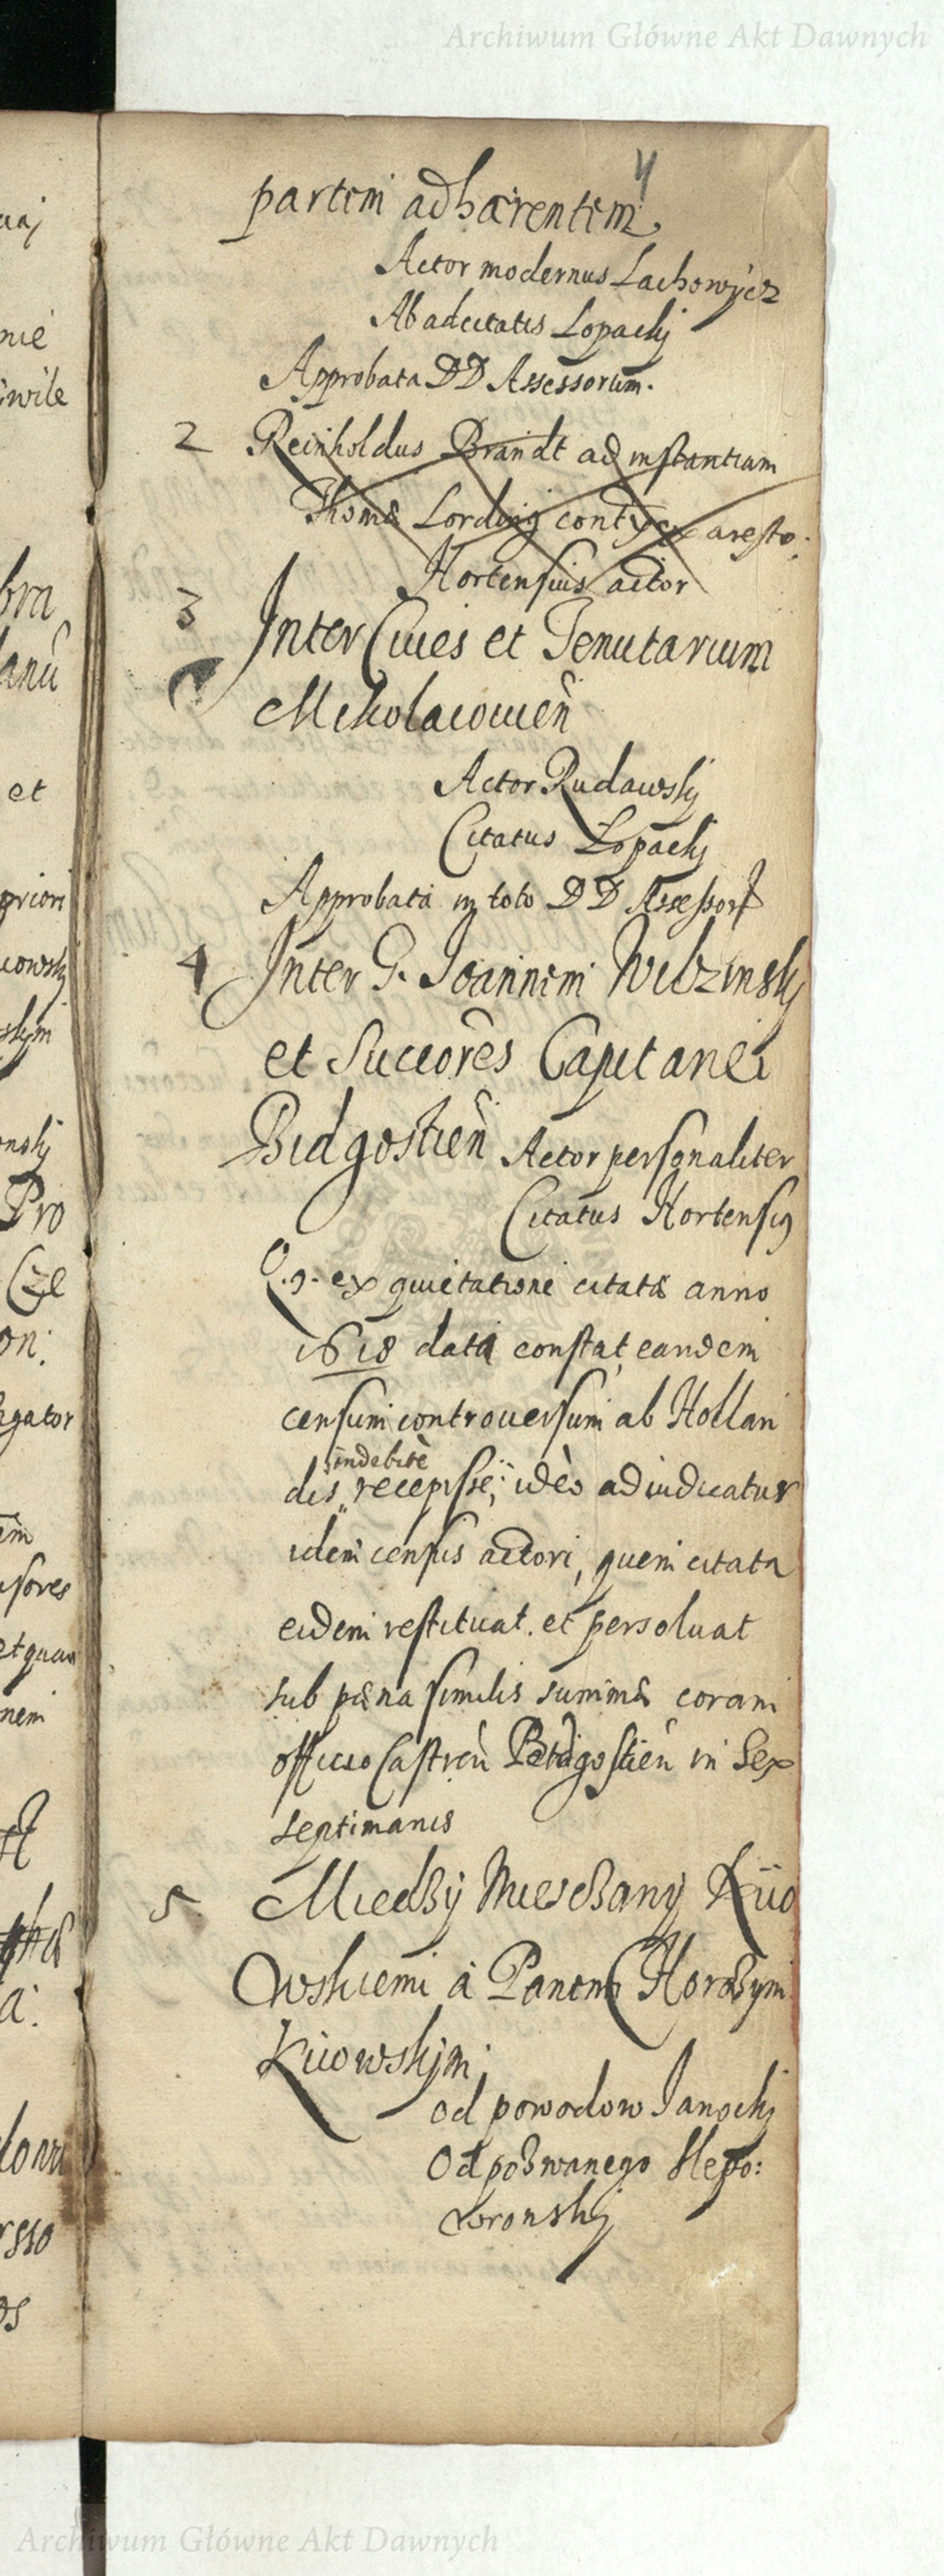 Archiwum Główne Akt Dawnych
4
partem adhærentem.
Actor modernus Lachowycz
Ab adcitatis Lopackj
Approbata DD Assessorum.
2 Reinholdus Brandt ad instantiam
Thomæ Lording cont ex aresto.
Hortensius actor
3 Inter Ciues et Tenutarium
Mikolaiouien
Actor Rudawskj
Citatus Lopackj
Approbata in toto DD Assessor
4 Inter G. Joannem Wilzinskj
et Succores Capitanei
Bidgostien Actor personaliter
Citatus Hortensig
Q.g. ex quietatione citatæ anno
1618 data constat eandem
censum controuersum ab Hollan
indebitè
dis recepisse, ideò adiudicatur
idem census actori, quem citata
eidem restituat. et persoluat
sub pæna similis summæ coram
officio Castren Bidgostien in sex
septimanis
5 Miedzÿ Miesczany Kiio
wskiemi à Panem Hordzym
Kiiowskjm.
od powodow Janockj
Od pozwanego Slepo:
wronskj
Archiwum Główne Akt Dawnych